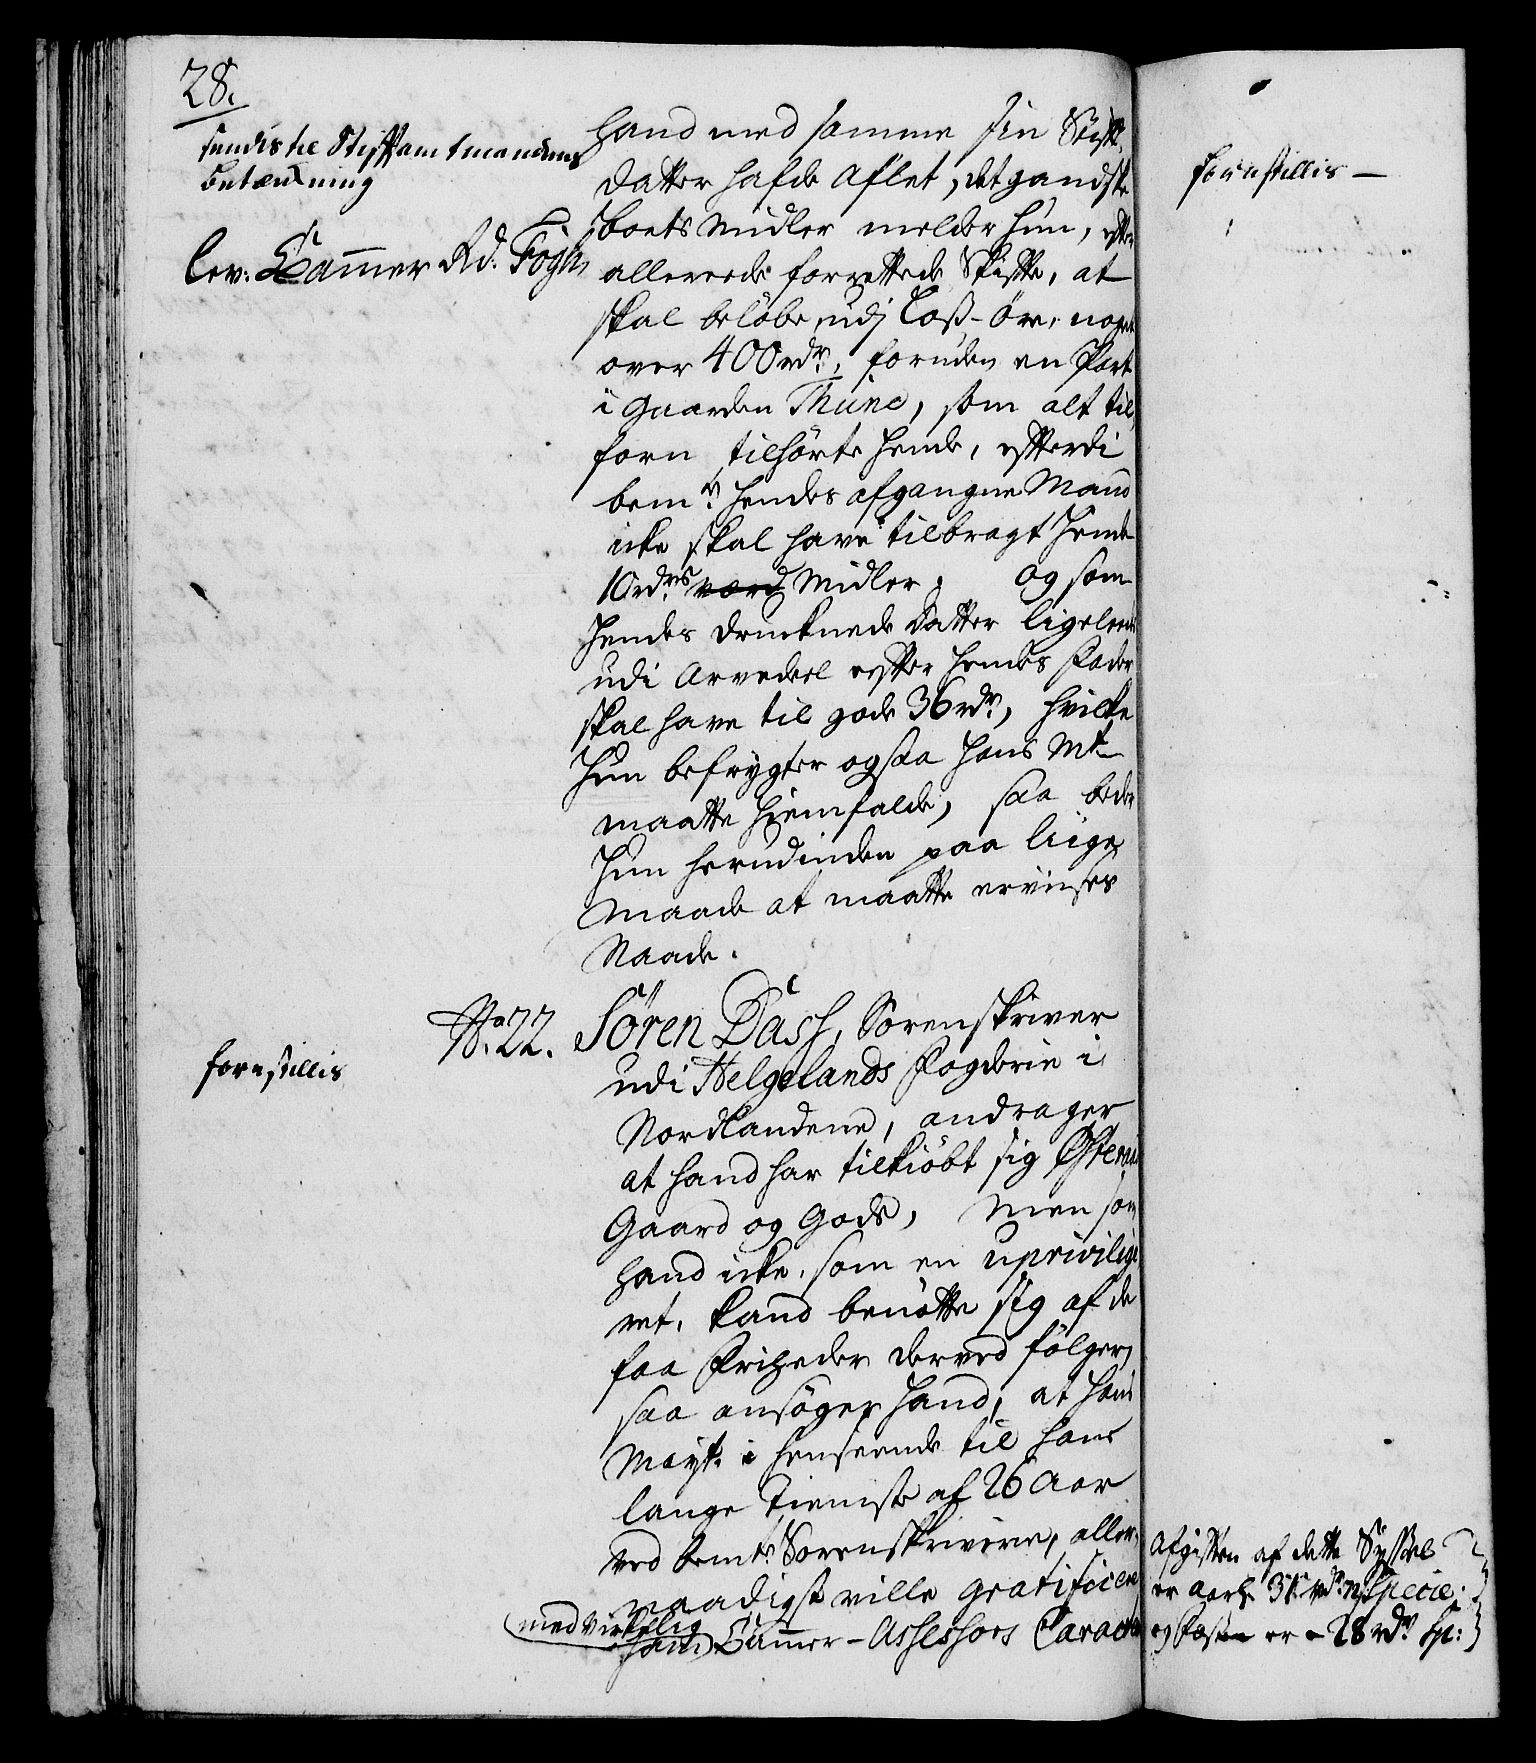 28.
sendis til Stiftamtmandens
betænkning
lev: Cammer Rd. Fogh
hand med samme sin Stif-
datter hafde aflet, det gandske
boets Midler melder hun, efter
allereede forrettede Skifte, at
skal beløbe udj Løß-Øre, noget
over 400 rdr., foruden en Part
i Gaarden Thune, som alt til-
forn tilhørte hende, efterdi
bemte hendes afgangne Mand
icke skal have tilbragt hende
10 rdrs værd Midler; og som
hendes druknede Datter ligeleedes
udi Arvedeel efter hendes Fader
skal have til gode 36 rdr., hvilke
hun befrygter ogsaa Hans Mt
maatte hiemfalde, saa beder
hun herudinden paa liige
maade at maatte erviises
Naade.
forestillis
No. 22. Sören Dass, Sorenskriver
udi Helgelands Fogderie i
Nordlandene, andrager
at hand har tilkiöbt sig
Gaard og Gods, men som
hand icke, som en uprivilige-
ret, kand benötte sig af de
faa Friheder derved fölger,
saa ansöger hand, at Hans
Mayt. i henseende til hans
lange Tieniste af 26 Aar
ved bemte Sorenskriverie, aller-
naadigst ville gratificere
med virkelig
ham Cammer-Assessors Caracter
forestillis —
Afgiften af dette Syssel
er aarl. rdr. Specie;
og er - 28 rdr Sp: